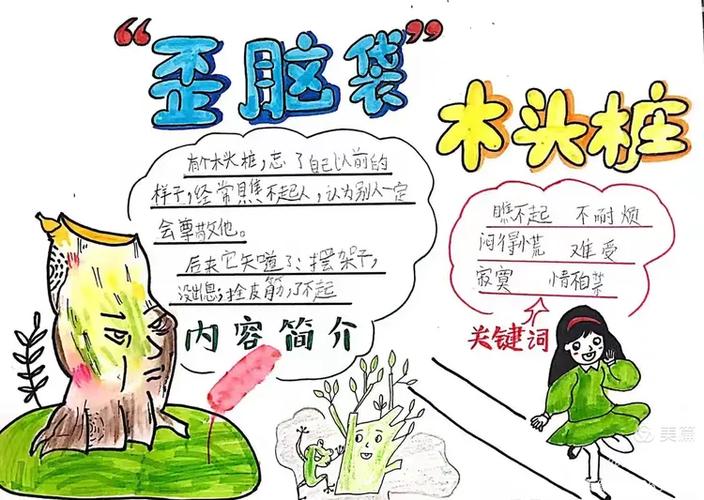 “歪脑袋”
木头桩
有个木头桩,忘了自己以前的
样子,经常瞧不起人,认为别人一定
会尊敬他。
后来它知道了:摆架子,
没出息,拴皮筋,了不起
内容简介
瞧不起 不耐烦
闷得慌 难受
寂寞
关键词
美篇